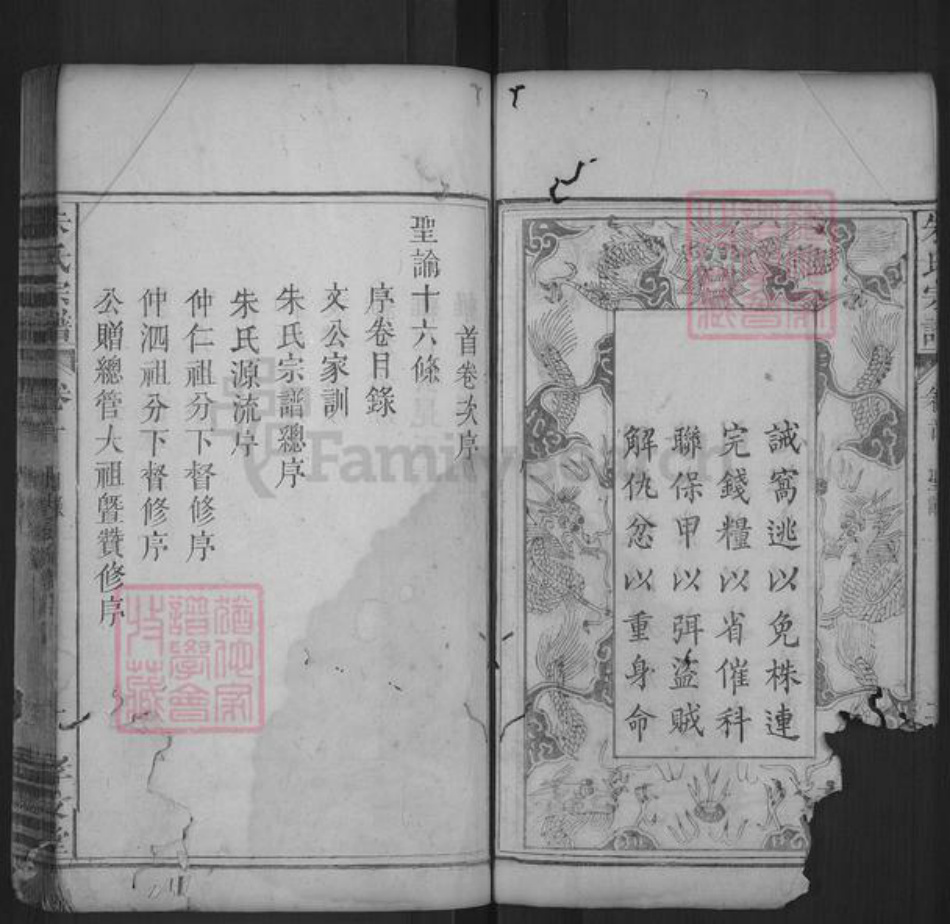 誡窩逃以免株連
完錢糧以省催科
聯保甲以弭盜賊
解仇忿以重身命
首卷次序
聖諭十六條
序卷目錄
文公家訓
朱氏宗譜總序
朱氏源流序
仲仁祖分下督修序
仲泗祖分下督修序
公贈總管大祖暨贊修序
朱氏宗譜
FamilySearch
猶他家譜學會收藏